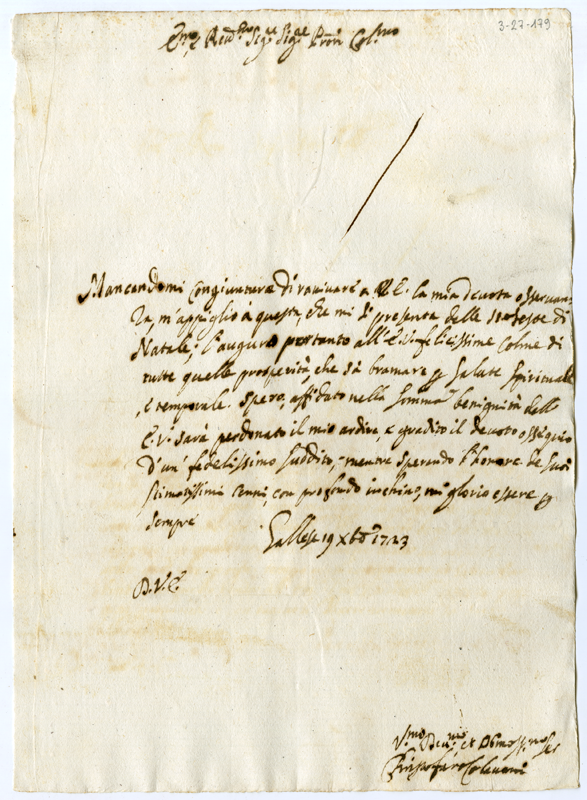 3-27-179
Em.o e Rev.mo Sig.re Sig.re Pron Col.mo
Mancandomi congiunture di ravivare a V.E. la mia devota osservan-
za, m'appiglio à questa, che mi si presenta delle S.te feste di
Natale; l'auguro pertanto all'E.V. felicissime colme di
tutte quelle prosperità, che sà bramare p salute spirituale
, e temporale. Spero, affidato nella somma benignità dell'
E.V. sarà perdonato il mio ardire, e gradito il devoto ossequio
d'un fedelissimo suddito, mentre sperando l'honore de suoi
stimatissimi cenni, con profondo inchino, mi glorio essere p
sempre
Gallese 19 Xbre 1723
D.V.E.
V.mo Dev.mo et Obmo Ser